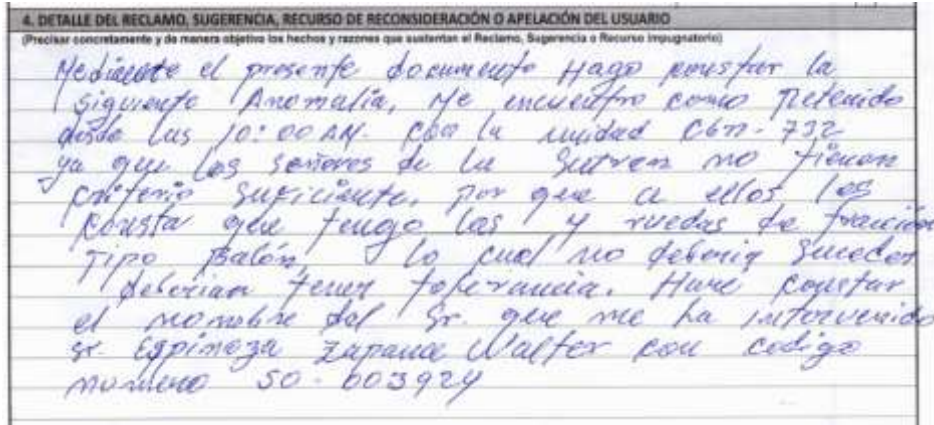 4. DETALLE DEL RECLAMO, SUGERENCIA, RECURSO DE RECONSIDERACIÓN O APELACIÓN DEL USUARIO
(Precisar concretamente y de manera objetiva los hechos y razones que sustentan el Reclamo, Sugerencia o Recurso Impugnatorio)
Mediante el presente documento Hago constar la
siguiente Anomalía, Me encuentro como Retenido
desde las 10:00 AM. con la unidad C6n-732
ya que los señores de la Sutran no tienen
criterio suficiente, por que a ellos les
consta que tengo las 4 ruedas de tracción
Tipo Balón, lo cual no deberia suceder
deberian tener tolerancia. Hare constar
el nonombre del Sr. que me ha intervenido
sr. Espinoza Zapana Walter con codigo
numero SO-003924